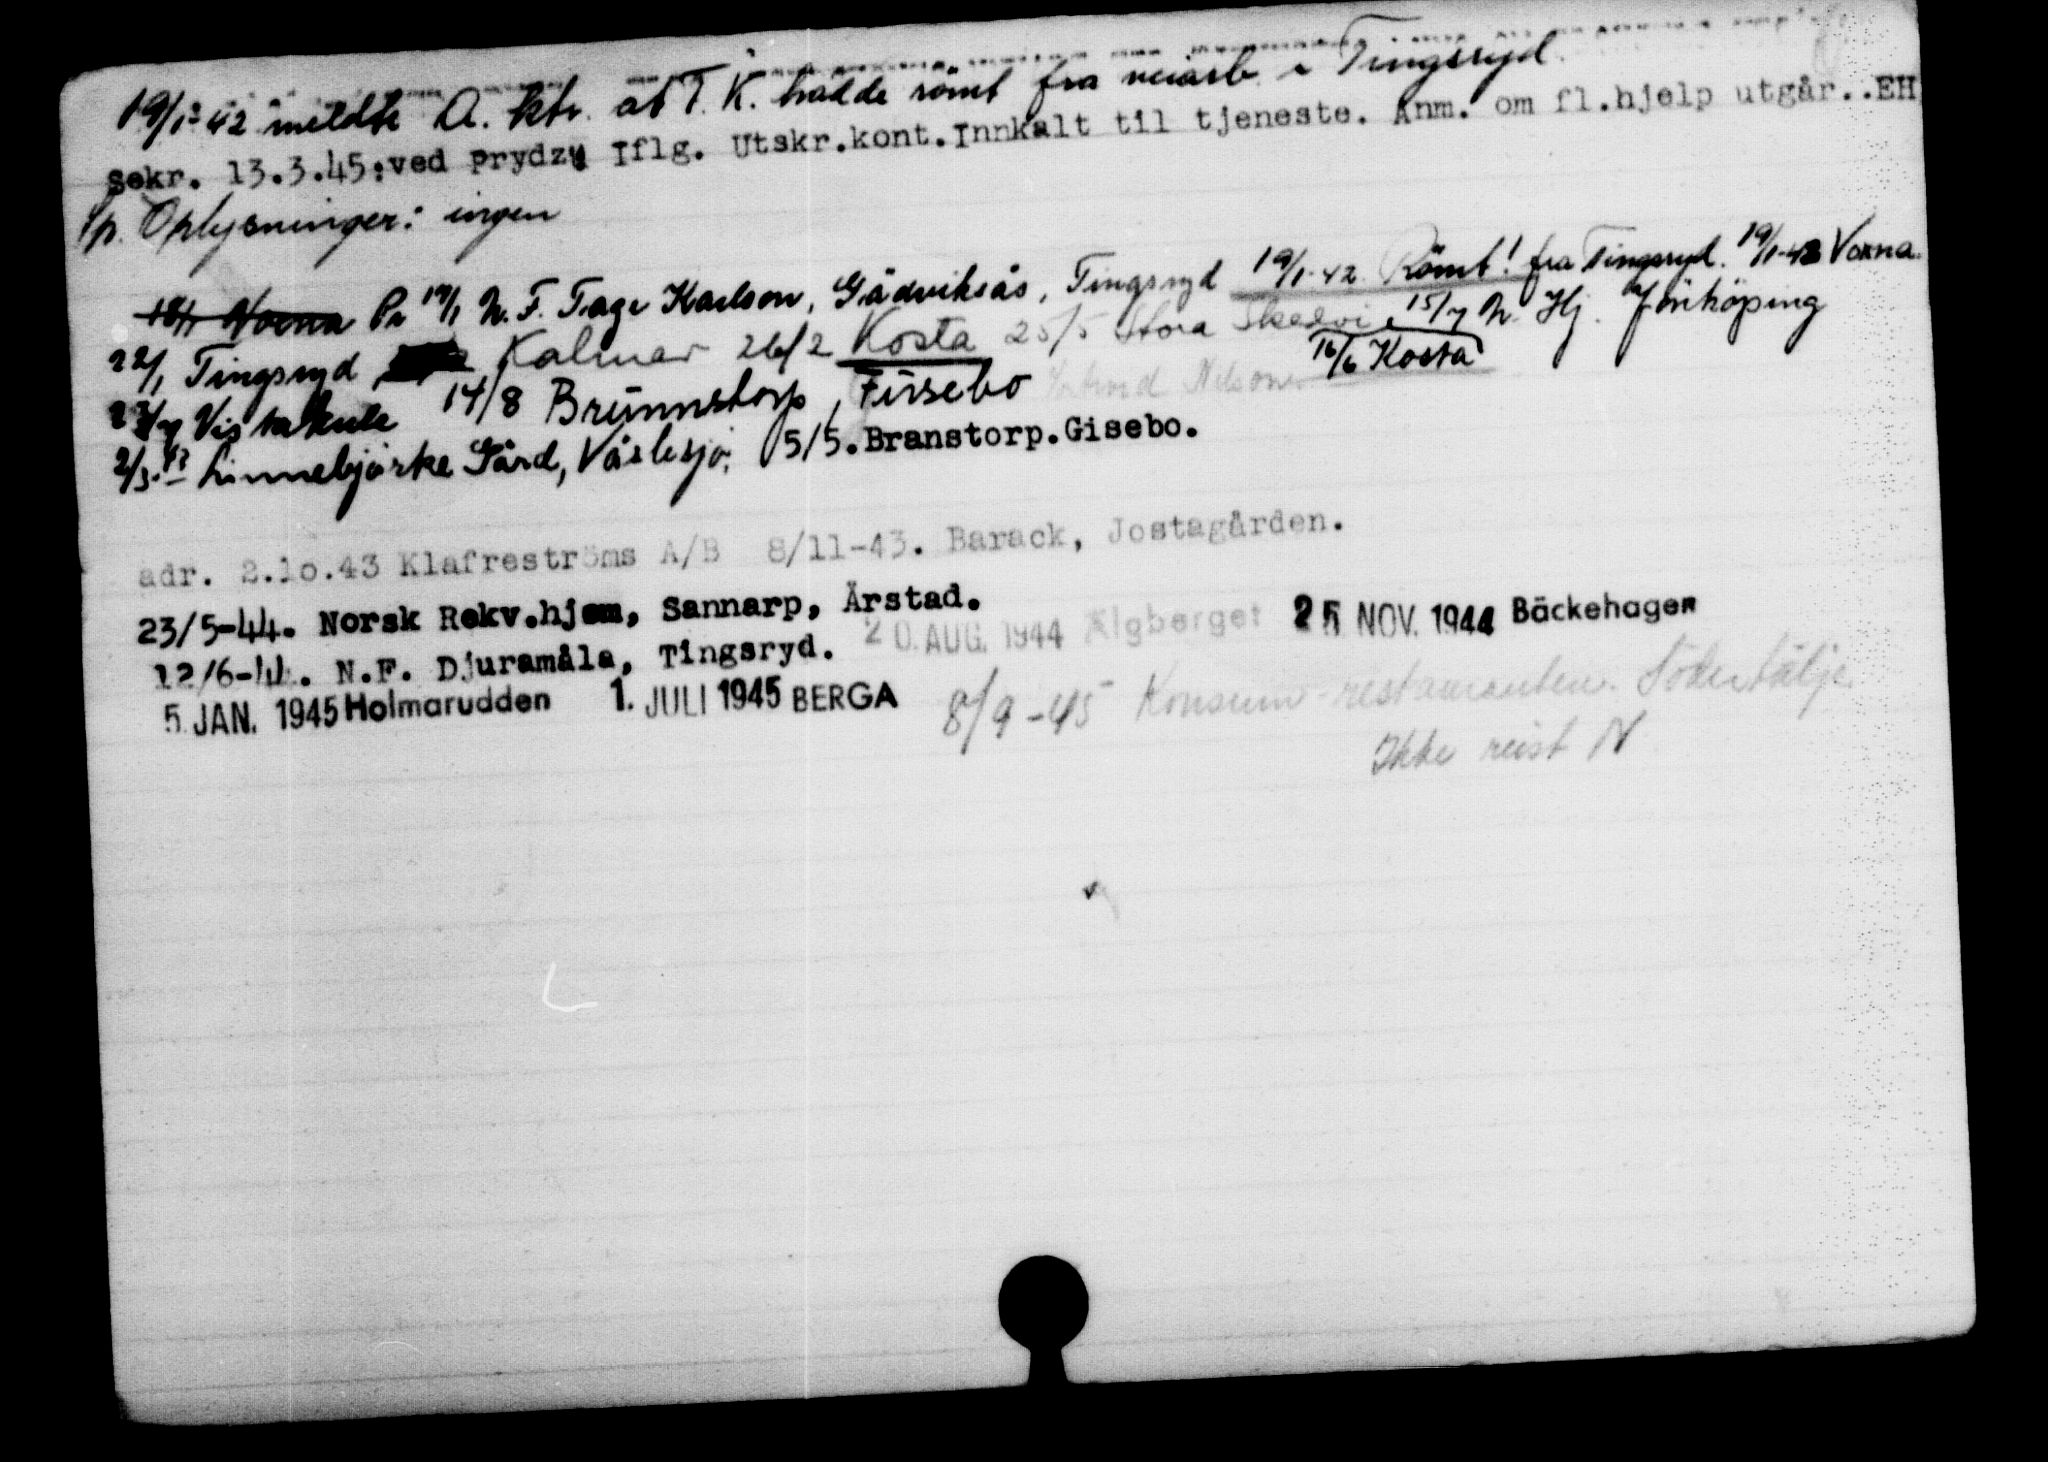 19/1-42 meldte A. ktr. at T. K. hadde römt fra veiarb i Tingsryd
Sekr. 13.3.45:ved Prydz Iflg. Utskr.kont.Innkalt til tjeneste. Anm. om fl.hjelp utgår..EH
p. Oplysninger: ingen
Voxna Pr 17/1 N. F. Tage Karlson, Gådviksås, Tingsryd 19/1-42 Römt! fra Tingsryd. 19/1-42 Voxna.
22/1 Tingsryd Kalmar 26/2 Kosta 25/5 Stora Skedvi, 15/7 N. Hj. Jönköping
16/6 Kosta
23/7 Vistakulle 14/8 Brünnstorp, Füsebo Nelson
2/3.43 Linnebjörke Gård, 5/5.Branstorp.Gisebo.
adr. 2.10.43 Klafreströms A/B 8/11-43. Barack, Jostagården.
23/5-44. Norsk Rekv.hjem, Sannarp, Årstad.
12/6-44. N.F. Djuramåla, Tingsryd. 20. AUG. 1944 Älgberget 25 NOV. 1944 Bäckehagen
5. JAN. 1945 Holmarudden 1. JULI 1945 BERGA 8/9-45 Konsum-restauranten. Södertälje.
Ikke reist N